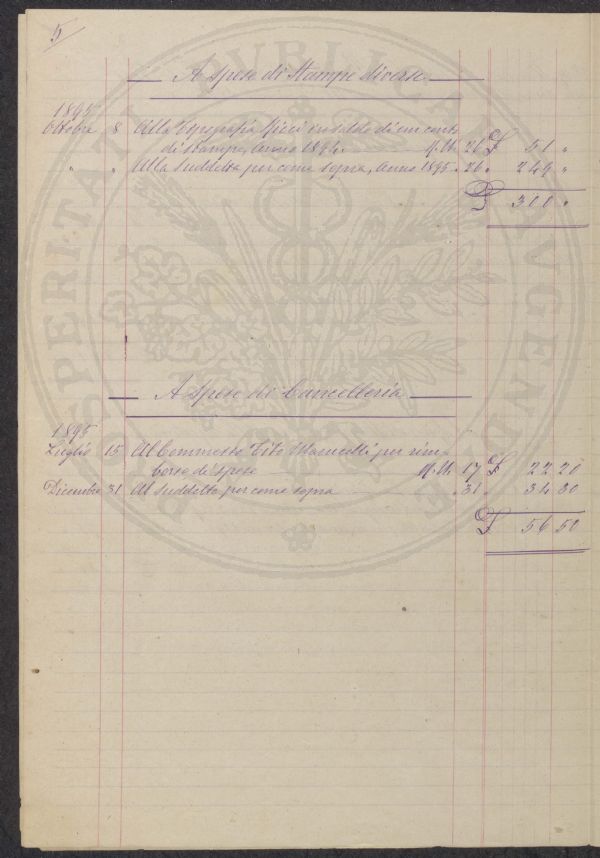 5
A Spese di Stampe diverse
1895
Ottobre 8 Alla Tipografia Ricci in saldo di un conto
di stampe, anno 1894. M.U. 26 £ 51 "
" " Alla Suddetta per come sopra, anno 1895 . 26 " 249 "
£ 300 "
A Spese di Cancelleria
1895
Luglio 15 Al Commesso Tito Marucelli per rim-
borso di spese M.U. 17 £ 22 20
Dicembre 31 Al Suddetto per come sopra . 31 " 34 30
£ 56 50
PROSPERITATI PUBLICAE AUGENDAE